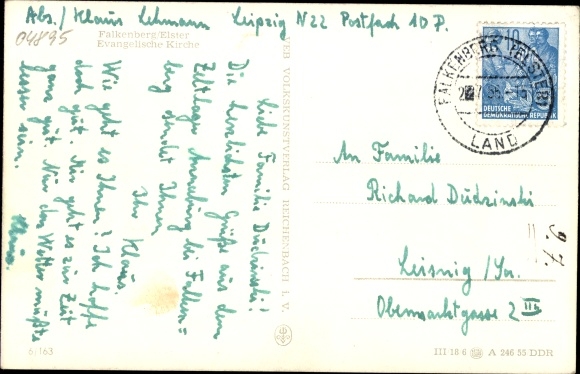 Abs./ Klaus Lehmann Leipzig N22 Postfach 10 P.
04895
Falkenberg/Elster
Evangelische Kirche
Liebe Familie Dudzinski!
Die herzlichsten Grüße aus dem
Zeltlager Annaburg bei Falken-
berg sendet Ihnen
Ihr Klaus.
Wie geht es Ihnen? Ich hoffe
doch gut. Mir geht es zur Zeit
ganz gut. Nur das Wetter müßte
besser sein.
Klaus.
VEB VOLKSKUNSTVERLAG REICHENBACH I. V.
10
DEUTSCHE
DEMOKRATISCHE REPUBLIK
FALKENBERG (ELSTER)
LAND
An Familie
Richard Dudzinski
Leisnig /Sa.
Obermarktgasse 2 III
9.7.
6/163
III 18 6 A 246 55 DDR